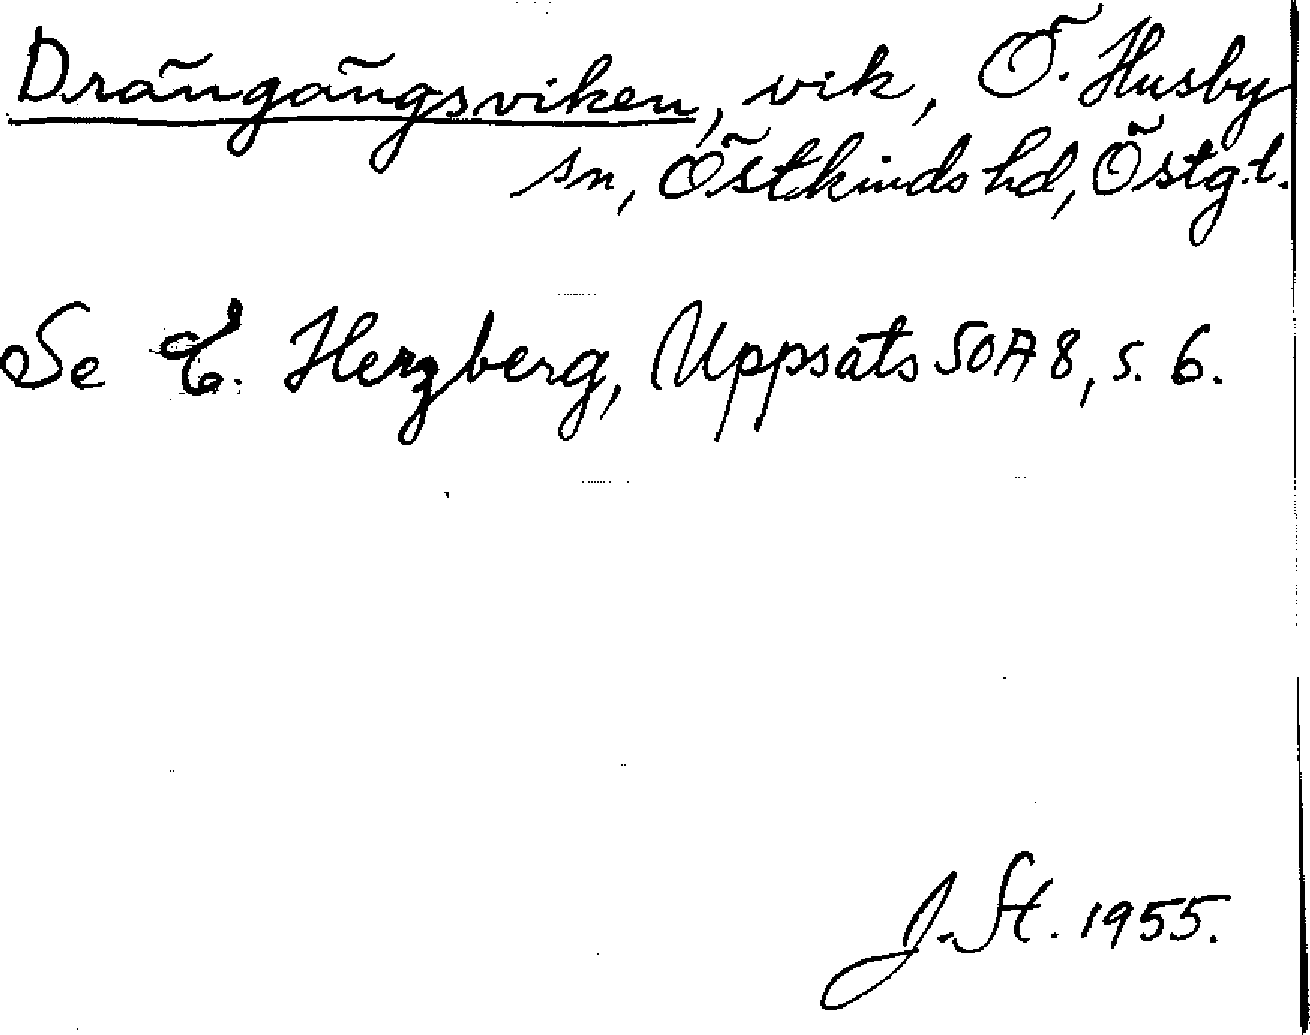 Drängängsviken, vik, Ö. Husby
sn, Östkinds hd, Östg.l.
Se E. Herzberg, Uppsats 50A8, s. 6.
J. St. 1955.